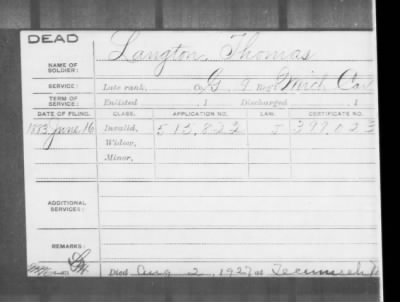 DEAD
Langton, Thomas
NAME OF
SOLDIER:
SERVICE: Late rank, Co. G, 9 Reg't Mich Cav
TERM OF
SERVICE: Enlisted , 1 Discharged , 1
DATE OF FILING. CLASS. APPLICATION NO. LAW. CERTIFICATE NO.
1883 June 16 Invalid, 513,822 J 397,023
Widow,
Minor,
ADDITIONAL
SERVICES:
REMARKS:
Died Aug 2, 1927 at Tecumseh